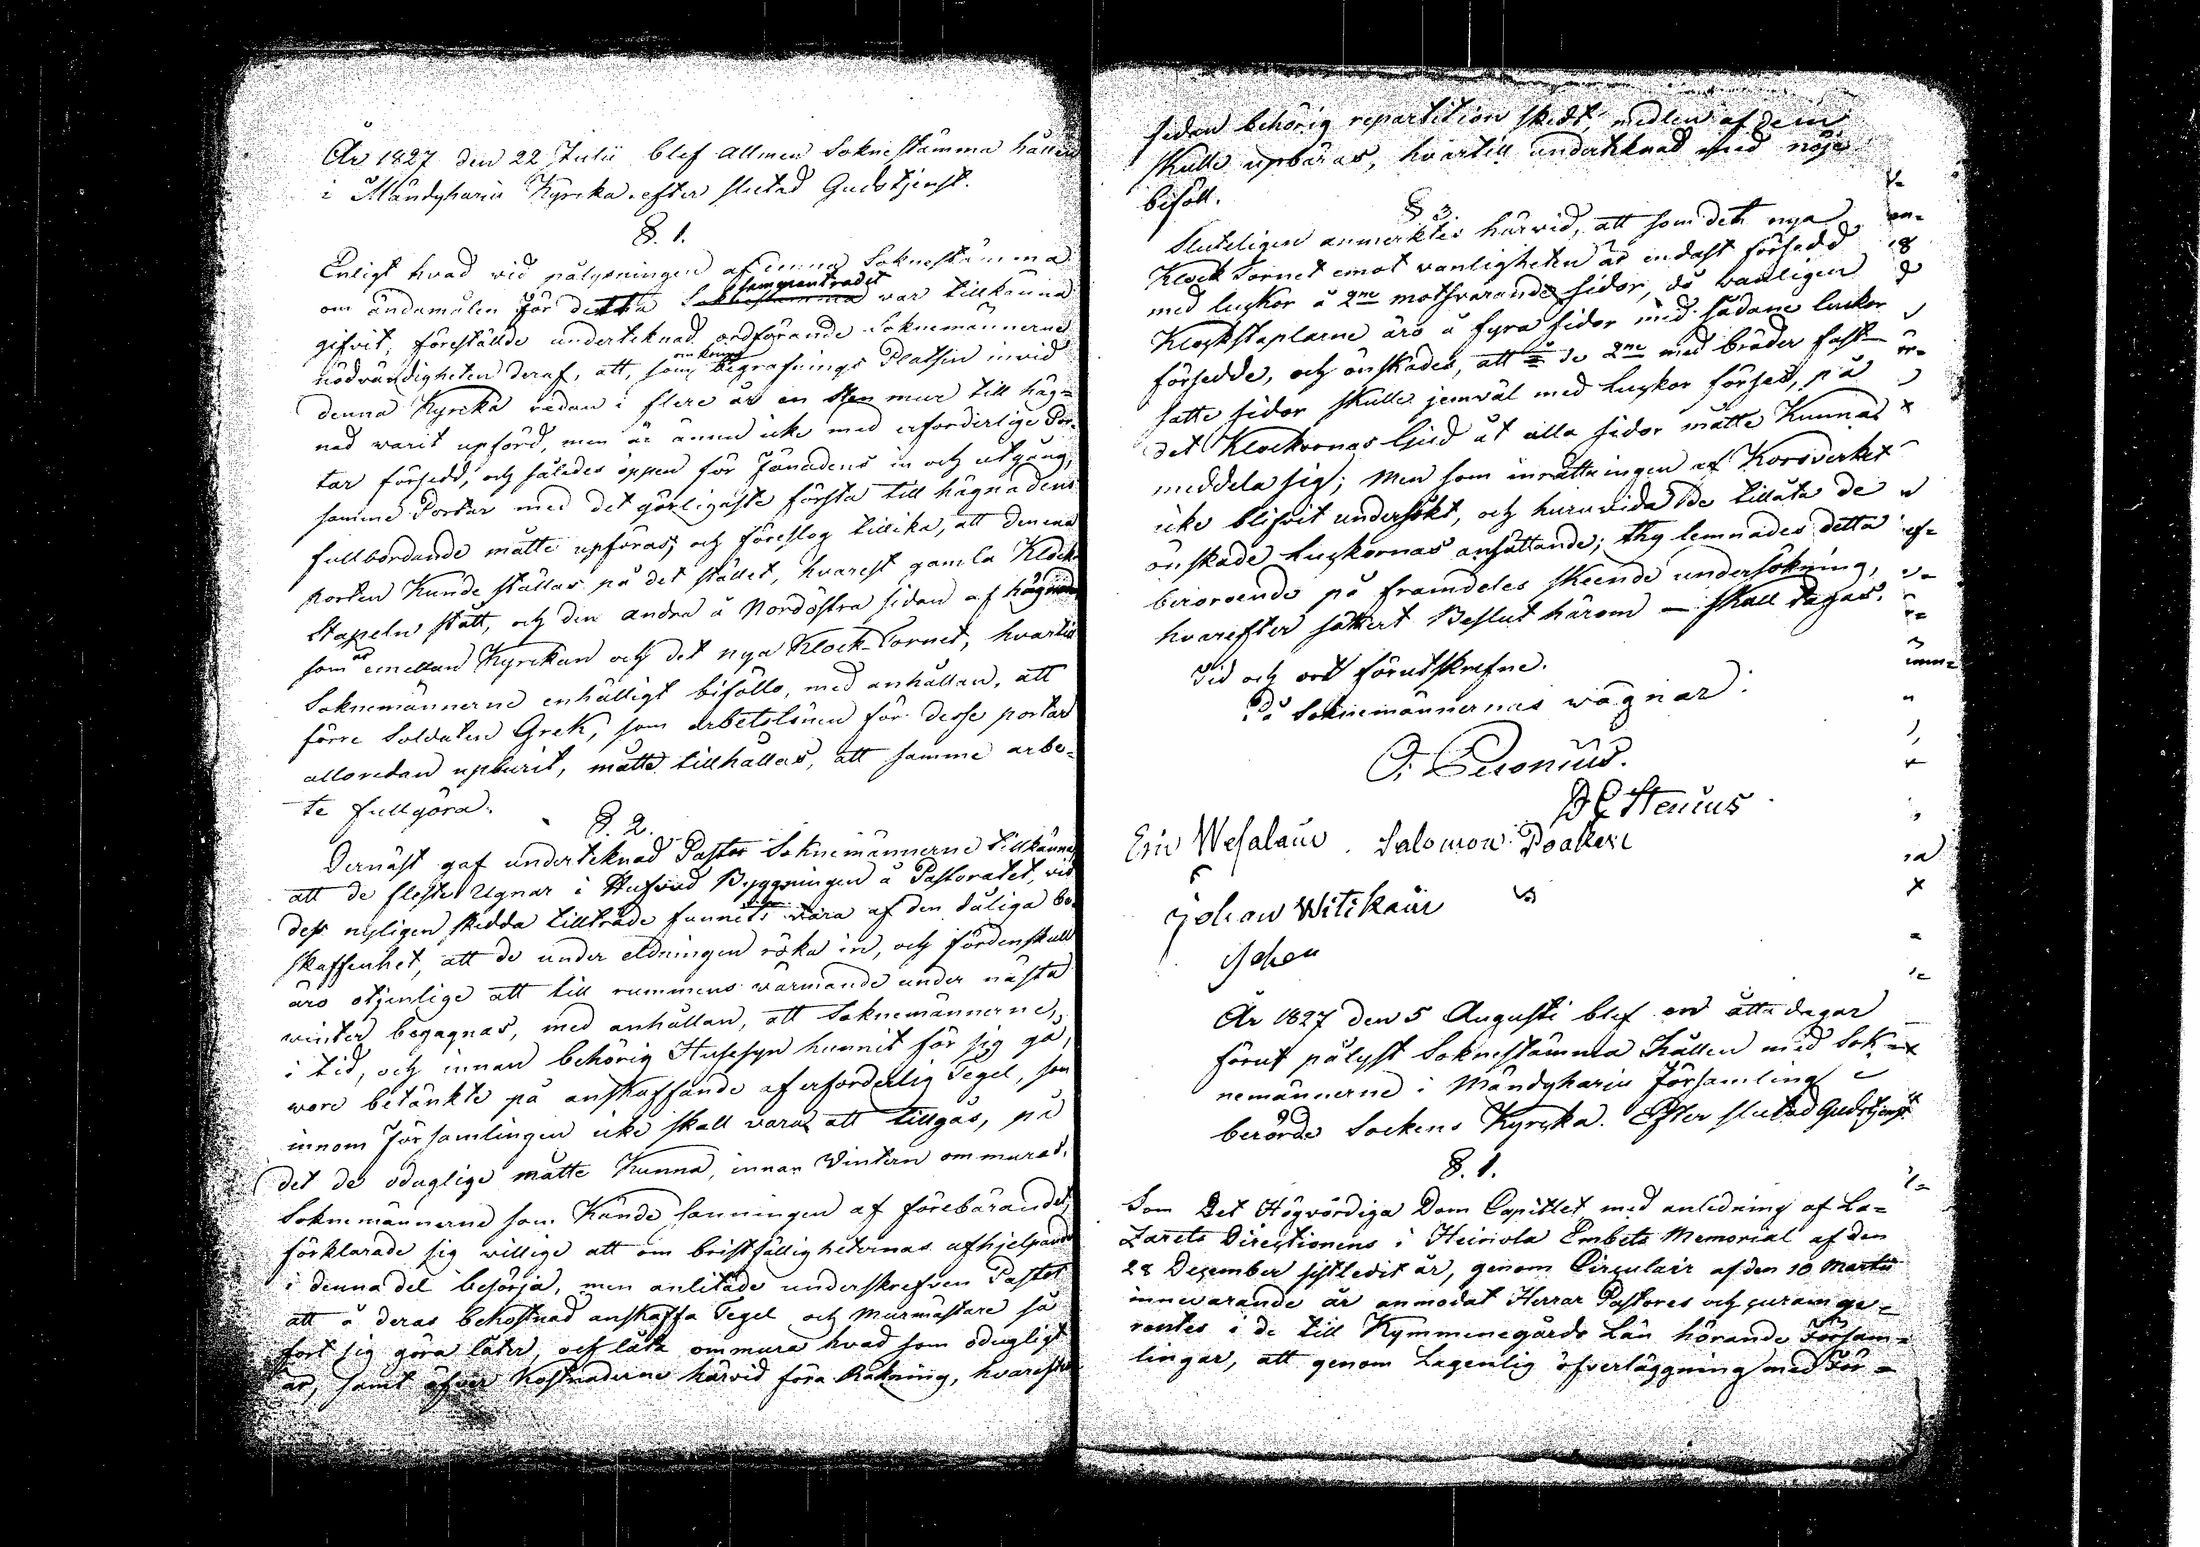 År 1827 den 22 Julii blef Allmen Soknestämma hållen
i Mändyharju Kyrcka efter slutad Gudstjenst.
§. 1.
Enligt hvad vid pålysningen af denna Soknestämma
om ändamålen för detta sammanträdet var tillkänna
gifvit, föreställde undertecknad ordförande Soknemännerne
nödvändigheten deraf, att, som omkring begrafnings Platsen invid
denna Kyrcka redan i flere år en sten mur till häg=
nad varit upförd, men är ännu icke med erforderlige Por-
tar försedd, och således öppen för Fänadens in och utgång,
samme Portar med det görligaste första till hägnadens
fullbordande måtte upföras; och föreslog tillika, att den ena
porten kunde ställas på det stället, hvarest gamla Klock
Stapeln stått, och den andra å Nordöstra sidan af hägnaden
som är emellan Kyrckan och det nya Klock-Tornet, hvartill
Soknemännerne enhälligt biföllo, med anhållan, att
förre Soldaten Grek, som arbetslönen för desse portar
alloredan upburit, måtte tillhållas, att samme arbe=
te fullgöra.
§. 2.
Dernäst gaf undertecknad Pastor Soknemännerne tillkänna
att de fleste Ugnar i Hufvud Byggningen å Pastoratet, vid
dess nyligen skedda tillträde funnits vara af den dåliga be-
skaffenhet, att de under eldningen röka in, och fördenskull
äro otjenlige att till rummens värmande under nästa
winter begagnas, med anhållan, att Soknemännerne,
i tid, och innan behörig Husesyn hunnit för sig gå,
wore betänkte på anskaffande af erforderlig Tegel, som
innom Församlingen icke skall vara att tillgås, på
det de oduglige måtte kunna, innan Vintern ommuras.
Soknemännerne som kände sanningen af förebärandet,
förklarade sig willige att om bristfälligheternas afhjelpande
i denna del besörja, men anlitade underskrefven Pastor
att å deras bekostnad anskaffa Tegel och Murmästare så
fort sig göra låter, och låta ommura hvad som odugligt
är, samt öfver Kostnaderne härvid föra Räkning, hvarefter
sedan behörig repartition skedt, medlen af dem
skulle upbäras, hvartill undertecknad med nöje
biföll.
§ 3.
Sluteligen anmerktes härvid, att som det nya
Klock Tornet emot vanligheten är endast försedd
med luckor å 2ne motsvarande sidor, då vanligen
Klockstaplarne äro å fyra sidor med sådane luckor
försedde, och önskades, att å de 2ne med bräder fast
satte sidor skulle jemväl med Luckor förses, på
det Klockornas ljud åt alla sidor måtte kunna
meddela sig; Men som inrättningen af Korsverket
icke blifvit undersökt, och huruvida de tillåta de
önskade Luckornas ansättande; thy lemnades detta
beroroende på framdeles skeende undersökning,
hvarefter säkert Beslut härom – skall tagas.
Tid och ort förutskrefne.
På Soknemännernas wägnar:
D E Stenius
Eric Wesalain. Salomon Poakari
Johan Witikain
Johan
År 1827 den 5 Augusti blef en åtta dagar
förut pålyst Soknestämma hållen med Sok=
nemännerne i Mändyharju Församling i
berörde Sockens Kyrcka. Efter slutad Gudstjenst
§. 1.
Som Det Högvördiga Dom Capitlet med anledning af La=
zarets Directionens i Heinola Embets Memorial af den
28 December sistledit år, genom Circulair af den 10 Martii
innevarande år anmodat Herrar Pastores och curam ge=
rentes i de till Kymmenegårds Län hörande Försam=
lingar, att genom Lagenlig öfverläggning med För=